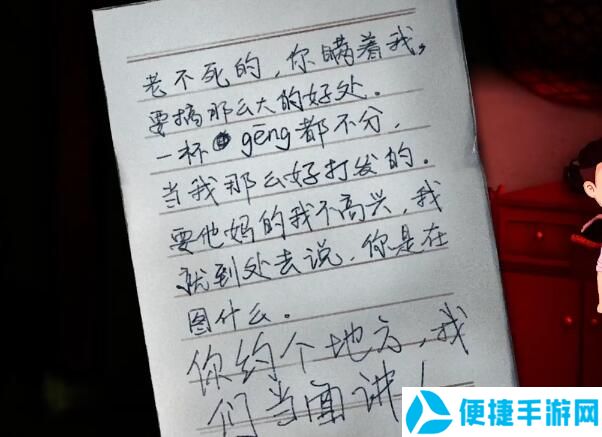 老不死的,你瞒着我,
要搞那么大的好处.
一杯gēng都不分,
当我那么好打发的.
要他妈的我不高兴,我
就到处去说,你是在
图什么。
你约个地方,我
们当面讲!
便捷手游网